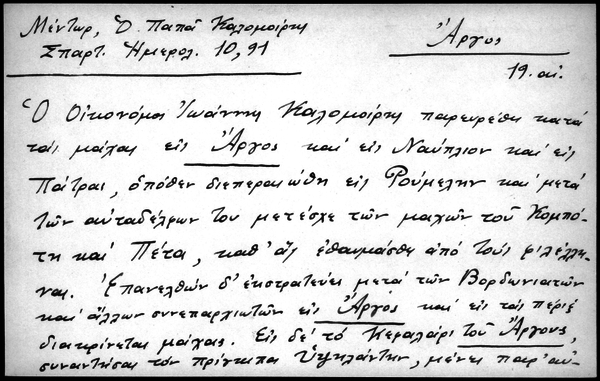 Μέντωρ, Ὁ Παπᾶ Καλομοίρης
Σπαρτ. Ἡμερολ. 10, 91
Ἄργος
19. αἰ.
Ὁ Οἰκονόμος Ἰωάννης Καλομοίρης παρευρέθη κατά
τάς μάχας εἰς Ἄργος καί εἰς Ναύπλιον καί εἰς
Πάτρας, ὁπόθεν διεπεραιώθη εἰς Ρούμελην καί μετά
τῶν αὐταδέλφων του μετέσχε τῶν μαχῶν τοῦ Κομπό-
τη καί Πέτα, καθ' ἅς ἐθαυμάσθη ἀπό τούς φιλέλλη-
νας. Ἐπανελθών δ' ἐκστρατεύει μετά τῶν Βορδωνιατῶν
καί ἄλλων συνεπαρχιωτῶν εἰς Ἄργος καί εἰς τάς πέριξ
διακρίνεται μάχας. Εἰς δέ τό Κεφαλάρι τοῦ Ἄργους,
συναντήσας τόν πρίγκιπα Ὑψηλάντην, μένει παρ' αὐ-